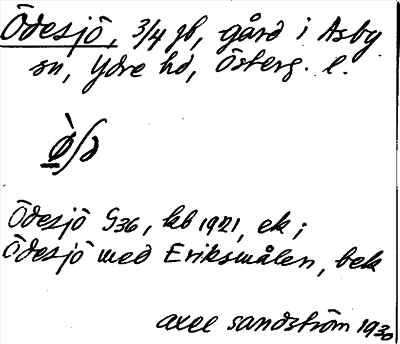 Ödesjö, 3/4 gb, gård i Asby
sn, Ydre hd, Österg. l.
Ödesjö G36, kb 1921, ek;
Ödesjö med Eriksmålen, bek
Axel Sandström 1930